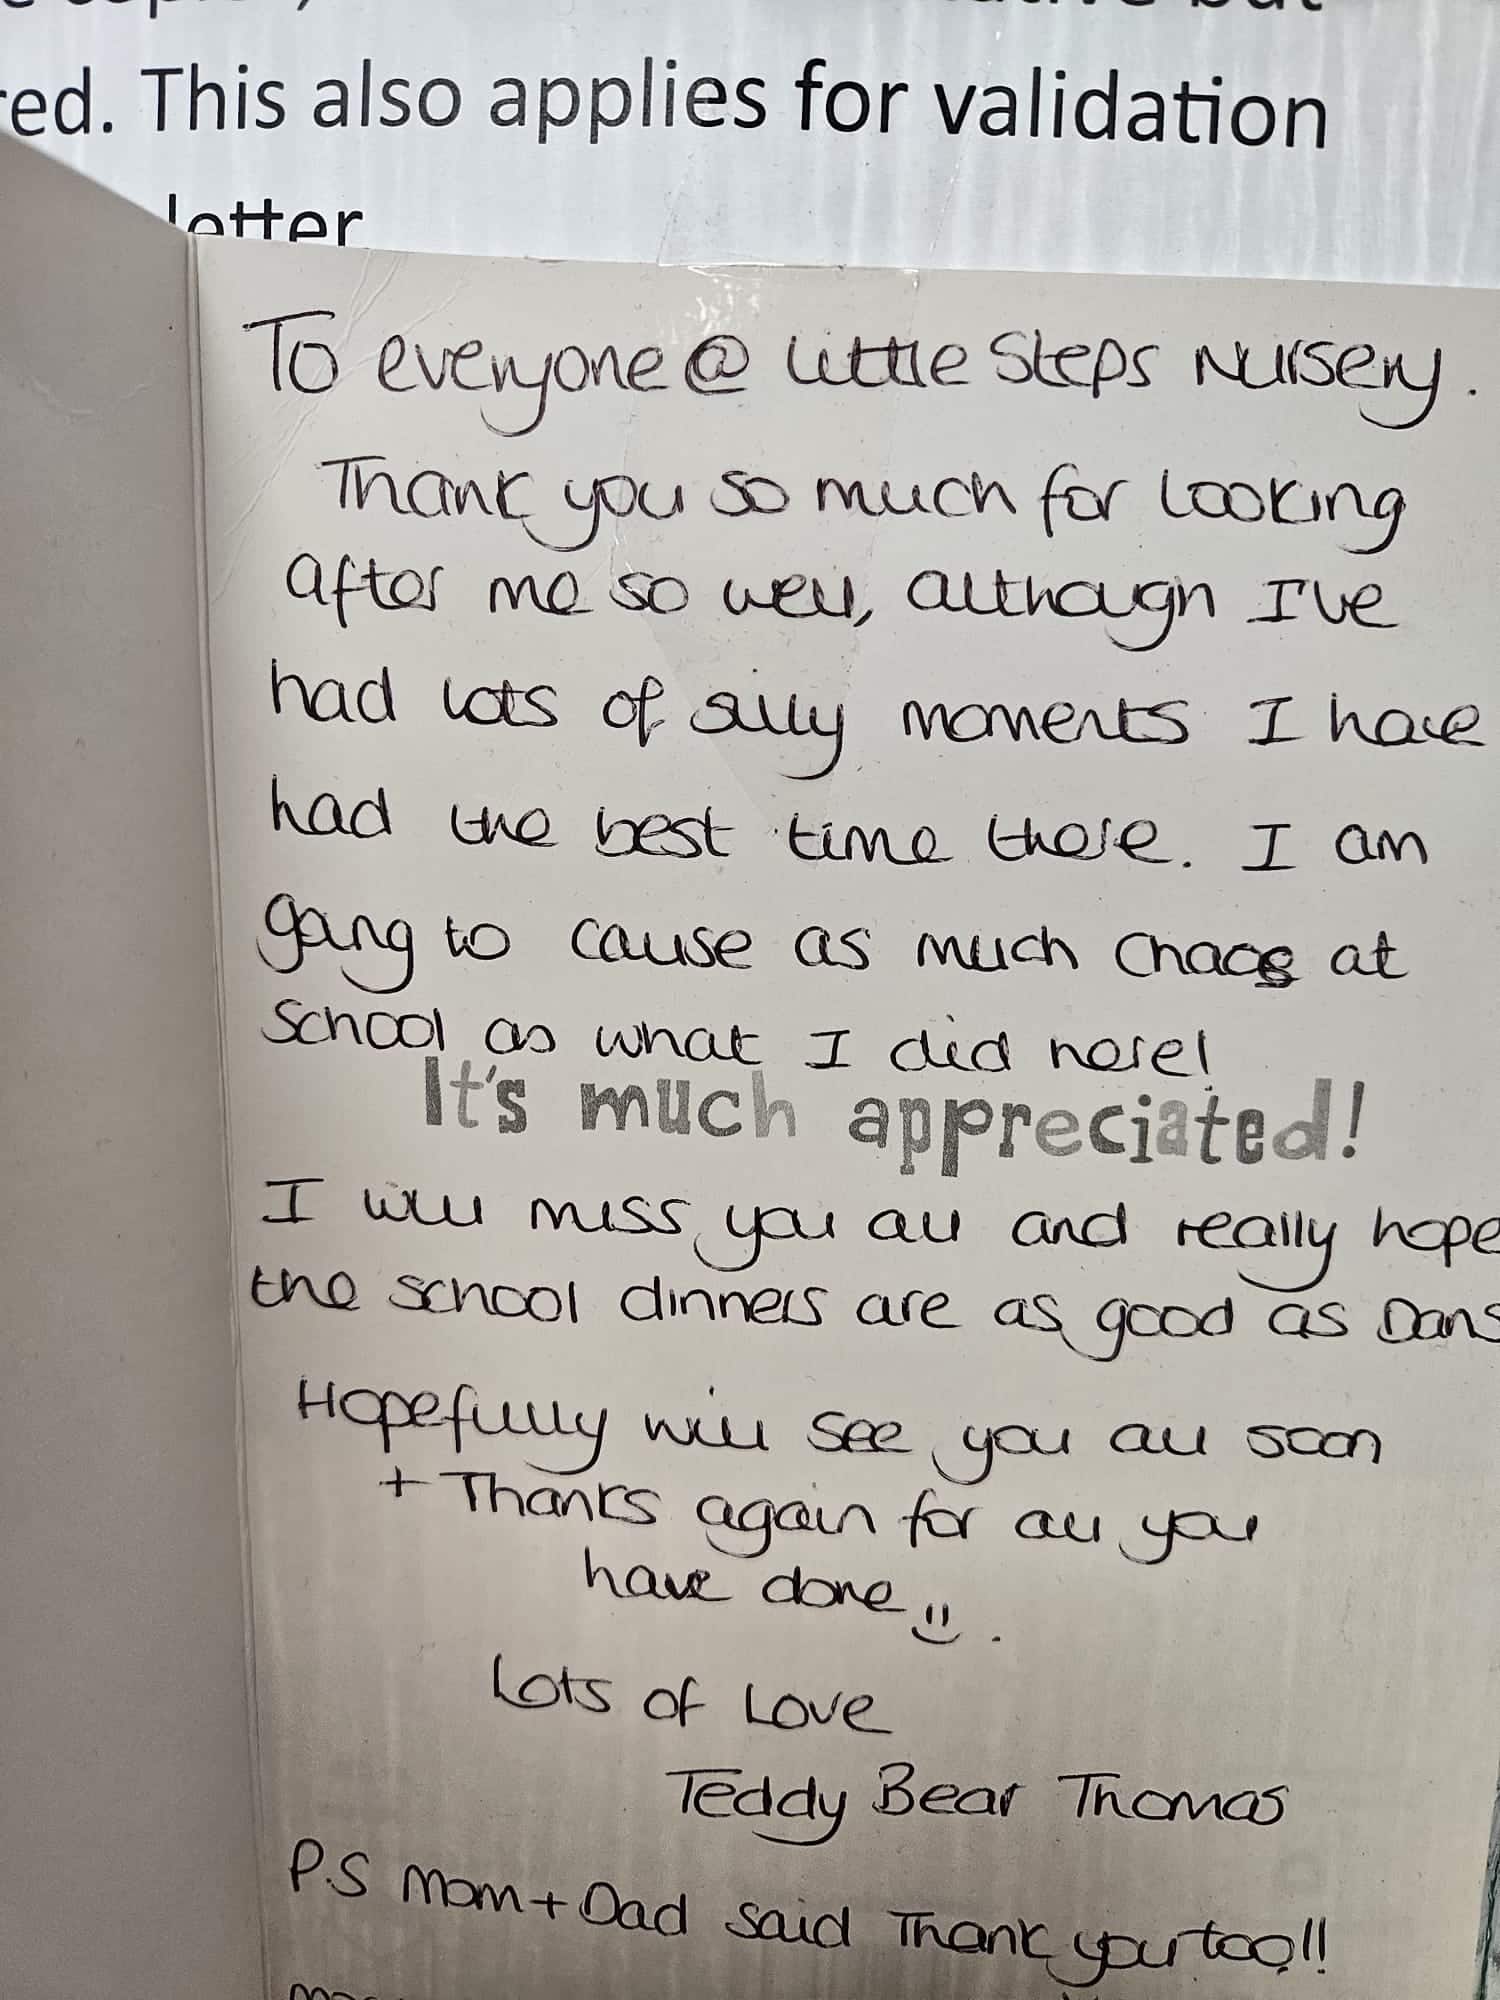 red. This also applies for validation
letter
To everyone @ Little Steps Nursery.
Thank you so much for looking
after me so well, although I've
had lots of silly moments I have
had the best time there. I am
going to cause as much chaos at
school as what I did here!
It's much appreciated!
I will miss you all and really hope
the school dinners are as good as Dans
Hopefully will see you all soon
+ Thanks again for all you
have done .
Lots of Love
Teddy Bear Thomas
P.S Mom + Dad said Thank you too!!